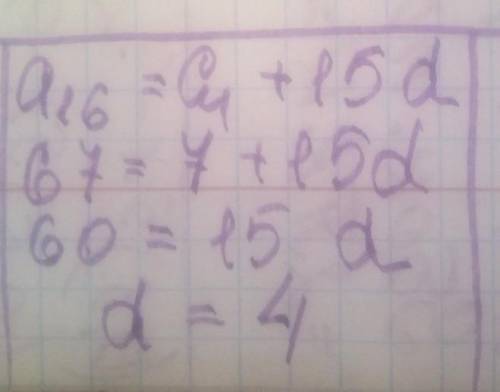 a₁₆ = a₁ + 15d
67 = 7 + 15d
60 = 15 d
d = 4